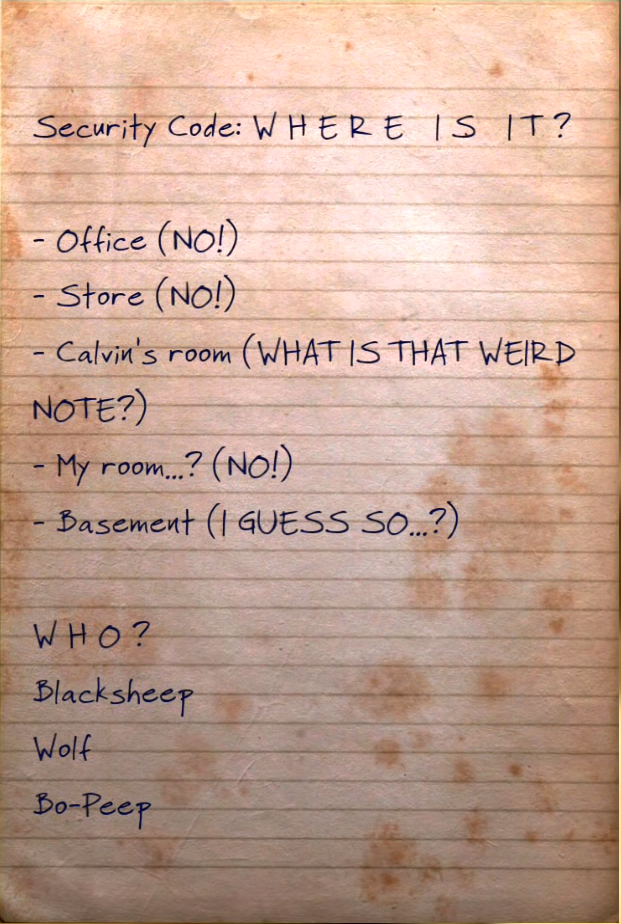 Security Code: W H E R E I S I T ?
- Office (NO!)
- Store (NO!)
- Calvin's room (WHAT IS THAT WEIRD
NOTE?)
- My room...? (NO!)
- Basement (I GUESS SO...?)
W H O ?
Blacksheep
Wolf
Bo-Peep